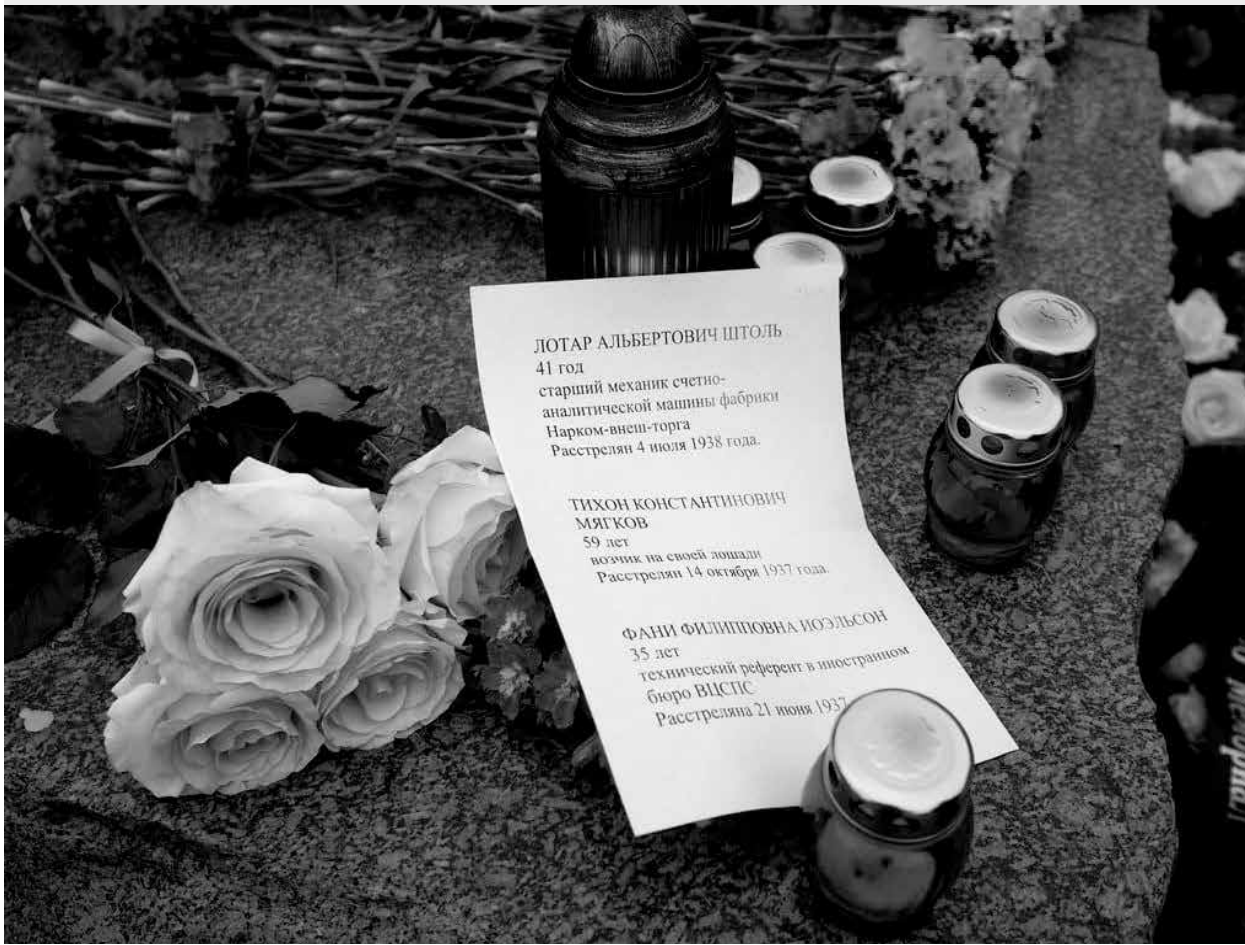 ЛОТАР АЛЬБЕРТОВИЧ ШТОЛЬ
41 год
старший механик счетно-
аналитической машины фабрики
Нарком-внеш-торга
Расстрелян 4 июля 1938 года.
ТИХОН КОНСТАНТИНОВИЧ
МЯГКОВ
59 лет
возчик на своей лошади
Расстрелян 14 октября 1937 года.
ФАНИ ФИЛИППОВНА ИОЭЛЬСОН
35 лет
технический референт в иностранном
бюро ВЦСПС
Расстреляна 21 июня 1937